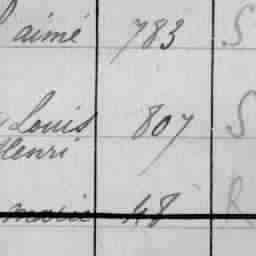 aimé 783 S
Louis 807 S
Henri
marie 48 R